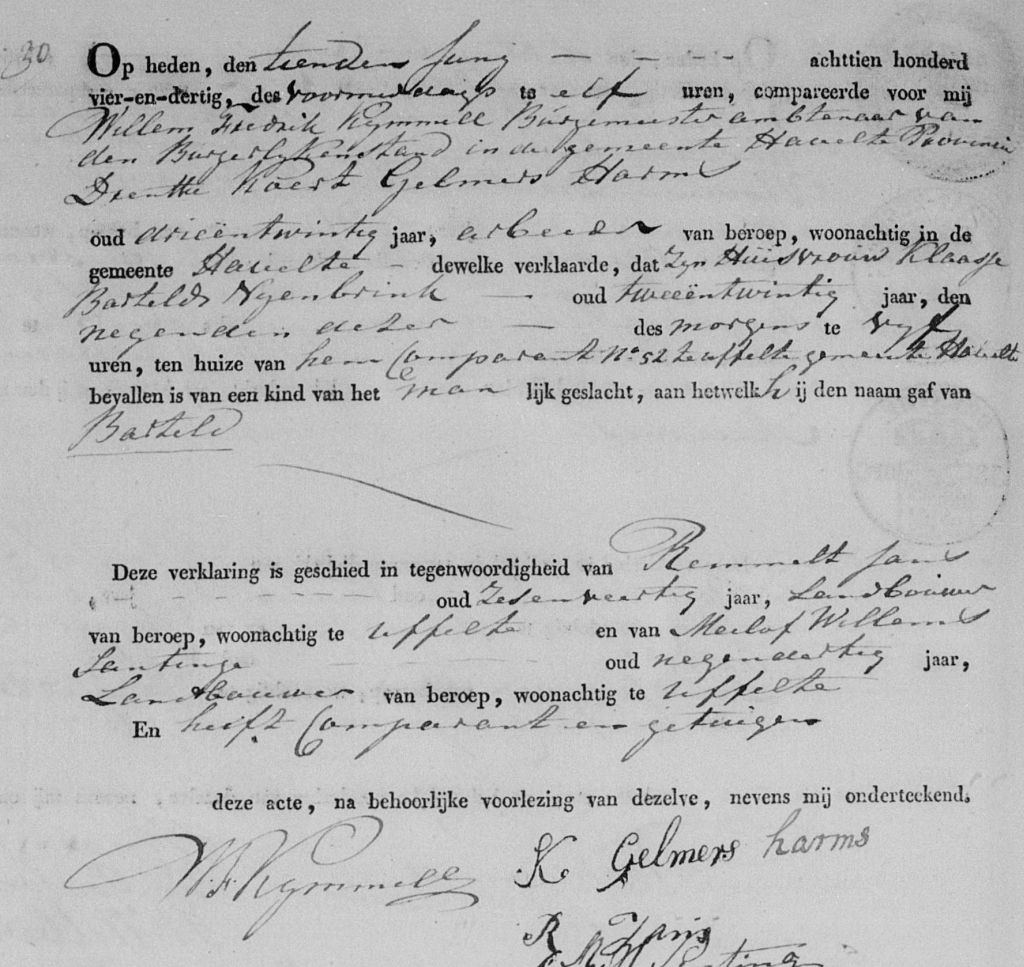 30
Op heden, den tienden Juny - - - - achttien honderd
vier-en-dertig, des voormiddags te elf uren, compareerde voor mij
Willem Fredrik Kymmell Burgemeester ambtenaar van
den Burgerlyken stand in de gemeente Havelte Provincie
Drenthe Koert Gelmers Harms
oud drieëntwintig jaar, arbeider van beroep, woonachtig in de
gemeente Havelte - dewelke verklaarde, dat Zyn Huisvrouw Klaasje
Bartelds Nyenbrink - oud tweeëntwintig jaar, den
negenden dezer - des morgens te vyf
uren, ten huize van hem Comparant No 52 te uffelte gemeente Havelte
bevallen is van een kind van het man lijk geslacht, aan hetwelk hij den naam gaf van
Barteld
Deze verklaring is geschied in tegenwoordigheid van Remmelt Jans
oud Zesenveertig jaar, Landbouwer
van beroep, woonachtig te Uffelte en van Meilof Willems
Santinge oud negendertig jaar,
Landbouwer van beroep, woonachtig te Uffelte
En heift Comparant en getuigen
deze acte, na behoorlijke voorlezing van dezelve, nevens mij onderteekend.
W.F. Kymmell K Gelmers harms
R Jans
M W Santing